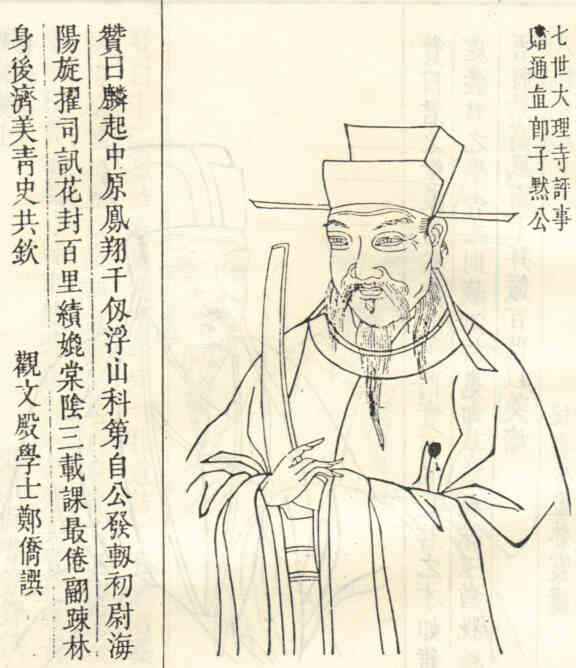 七世大理寺評事
贈通直郎子黙公
贊曰麟起中原鳳翔千仭浮山科第自公發軔初尉海
陽旋擢司訊花封百里績媲棠陰三載課最倦翮踈林
身後濟美青史共欽 觀文殿學士鄭僑譔